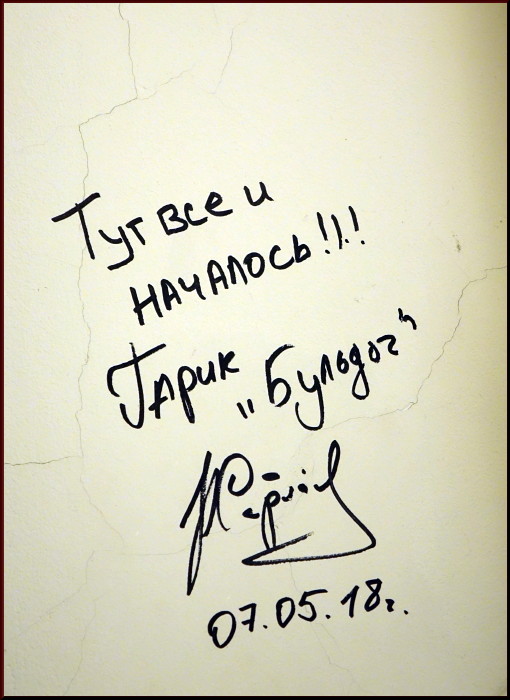 Тут все и
началось!!!
Гарик „Бульдог“
07.05.18г.